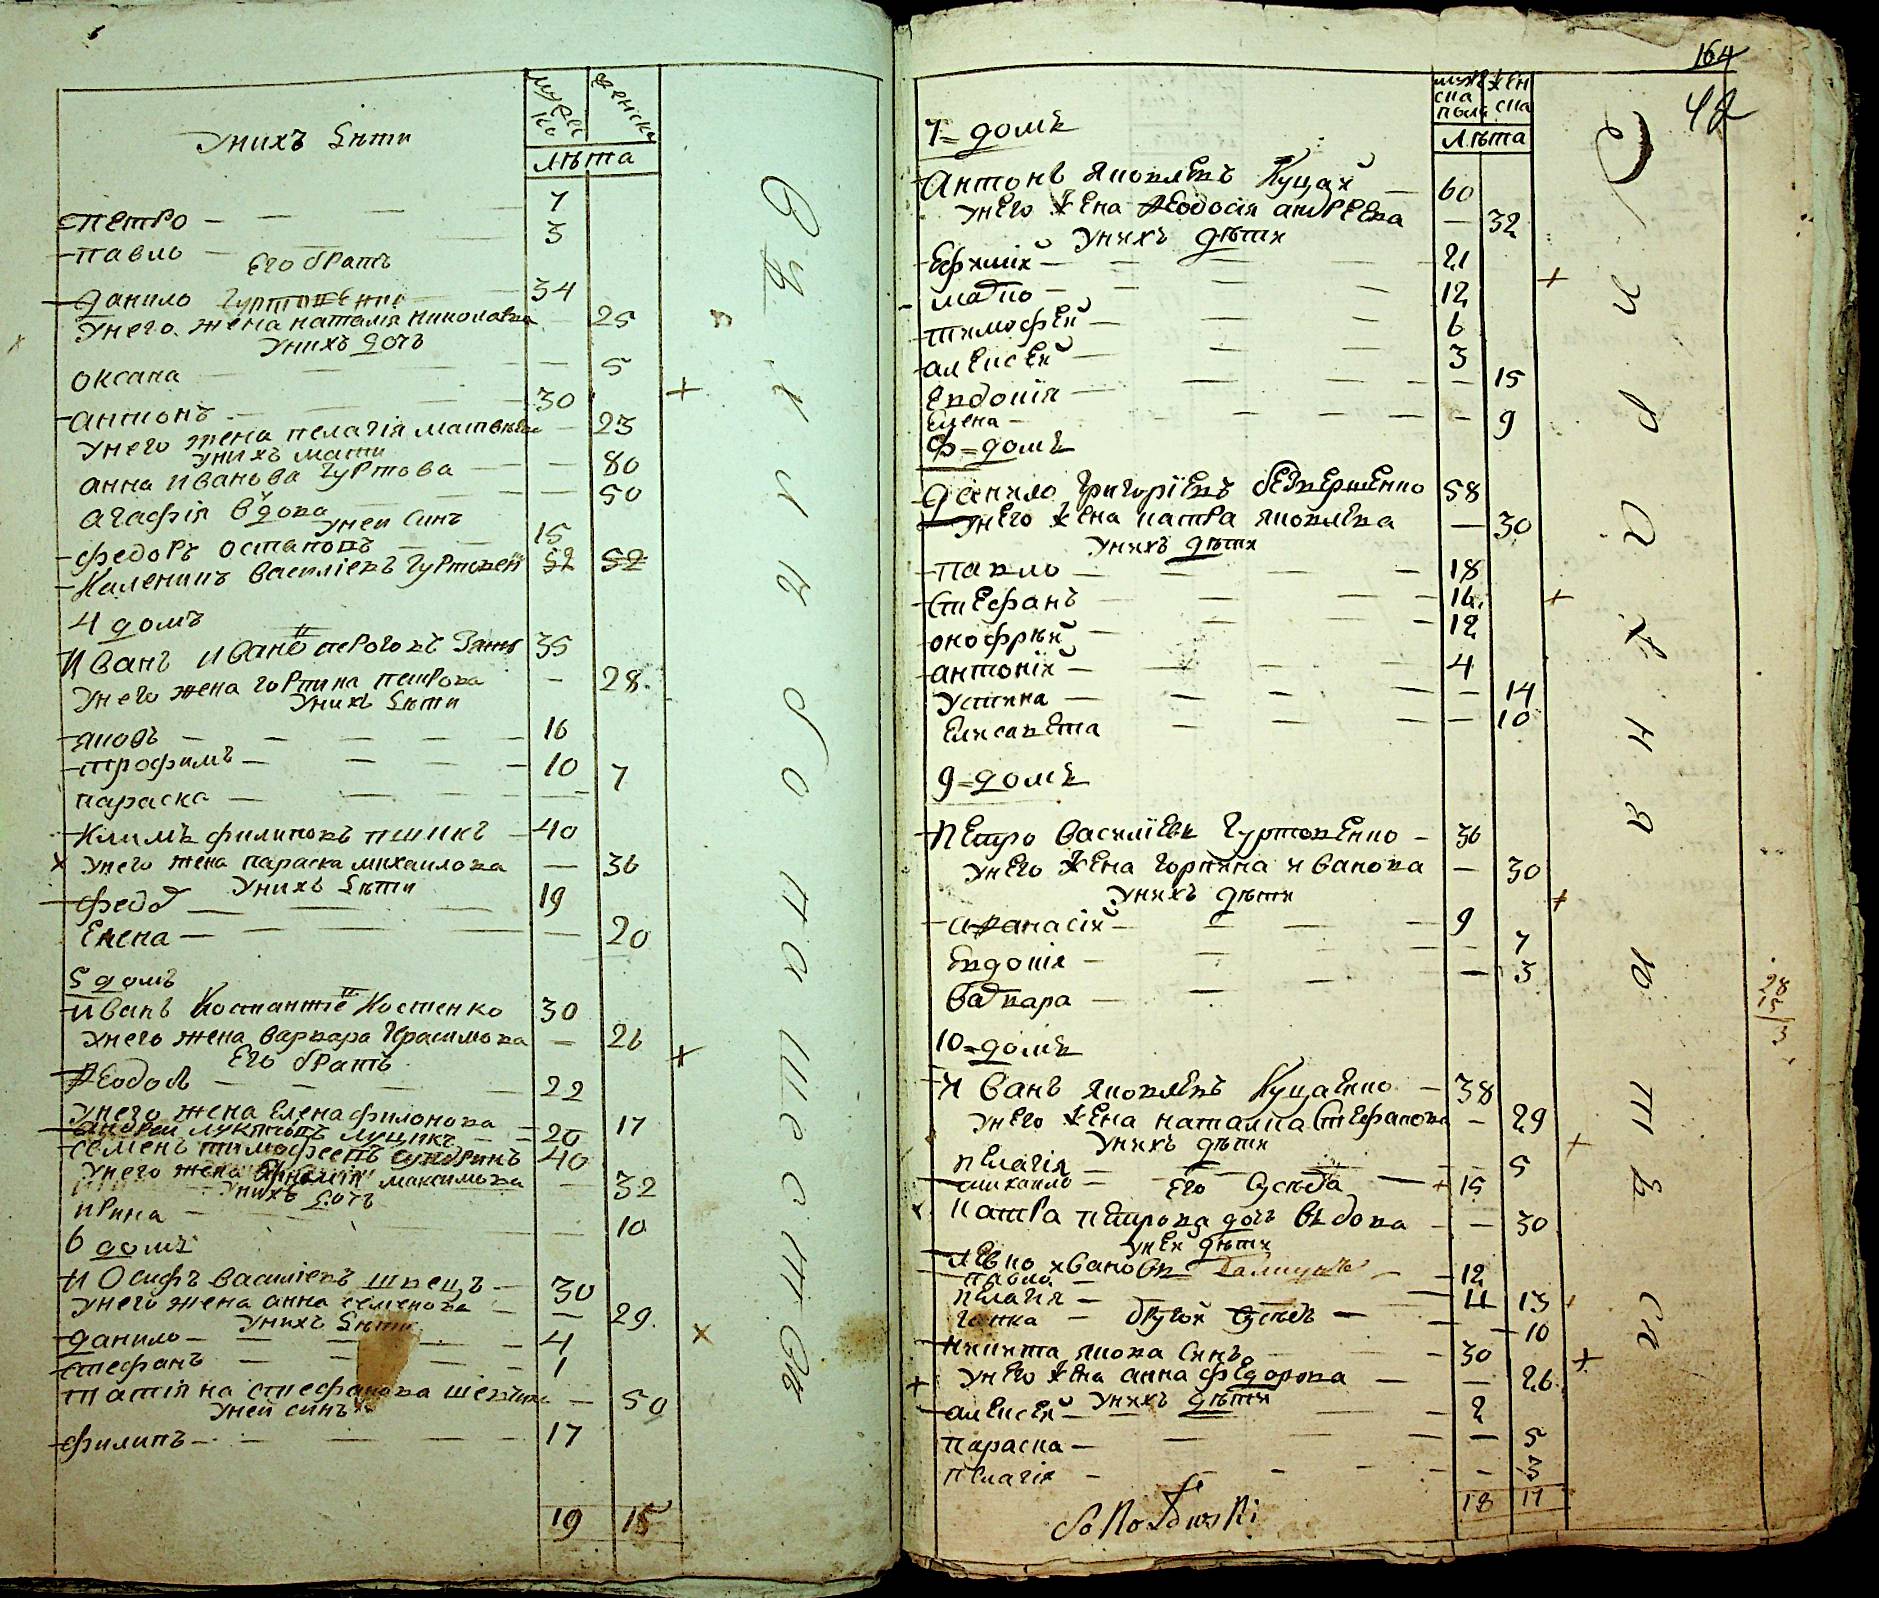 Унихъ Дѣти
мужеско
женску
лѣта
петро 7
павло 3
Его братъ
данило Гуртовенко 34
Унего жена наталия николаева 25
Унихъ дочъ
оксана 5
антонъ 30
Унего жена пелагія матвѣева 23
Унихъ мати
анна Иванова Гуртова 80
агафія вдова 50
Уней синъ
федоръ остаповъ 15
Каленикъ Василіевъ Гуртовен 52 52
4 домъ
Иванъ Ивано перогокъ Зать 35
Унего жена горпина петрова 28
Унихъ Дѣти
яковъ 16
трофимъ 10
параска 7
Климъ филиповъ пшикъ 40
х Унего жена параска михаилова 36
Унихъ Дѣти
федо 19
Елена 20
5 домъ
Иванъ Костанти Костенко 30
Унего жена варвара Герасимова 26
Его братъ
Ѳеодо 22
Унего жена Елена филонова 17
андреи луцикъ 20
семенъ тимофеевъ 40
Унего жена максимова 32
Унихъ Дочъ
Ирина 10
6 домъ
Иосифъ Василіевъ швецъ 30
Унего жена анна семенова 29
Унихъ Дѣти
данило 4
стефанъ 1
татіяна стефанова 50
Уней синъ
филипъ 17
19 15
164
42
мужеска пола
женска
лѣта
7 = домъ
Антонъ яковлевъ Куцай 60
унего жена Ѳеодосія андреева 32
унихъ дѣти
Ефимій 21
марко 12
тимофей 6
алексей 3
Евдокія 15
Елена 9
8 = домъ
данило Григоріевъ безвершенко 58
унего жена катра яковлева 30
унихъ дѣти
павло 18
Стефанъ 14
онофрій 12
антоній 4
Устина 14
Елисавета 10
9 = домъ
Петро Василіевъ Гуртовенко 36
унего жена горпина Иванова 30
унихъ дѣти
аѲанасій 9
Евдокія 7
Варвара 3
10 = домъ
Иванъ яковлевъ Куцаенко 38
унего жена наталка Стефанова 29
унихъ дѣти
пелагія 5
михаило 15
Его Сусѣда
Катра петрова дочъ вѣдова 30
уней дѣти
левко ивановъ 12
павло 11
пелагія 13
ганка 10
другой Сусѣдъ
Никита якова Синъ 30
унего жена анна федорова 26
унихъ дѣти
алексей 2
параска 5
пелагія 3
18 17
28
15
3